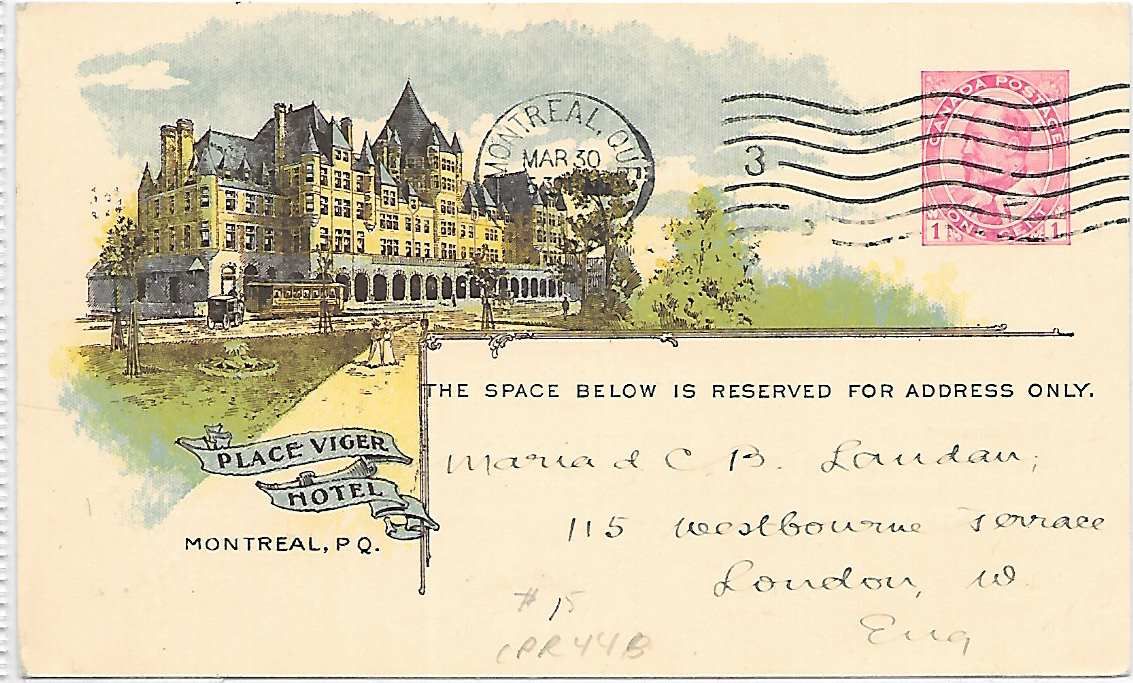 MONTREAL, QUE
MAR 30
3
CANADA POSTAGE
1 ONE CENT 1
THE SPACE BELOW IS RESERVED FOR ADDRESS ONLY.
PLACE VIGER
HOTEL
MONTREAL, P Q.
Maria d C B. Landau,
115 Westbourne Terrace
London, W
Eng
# 15
CPR44B